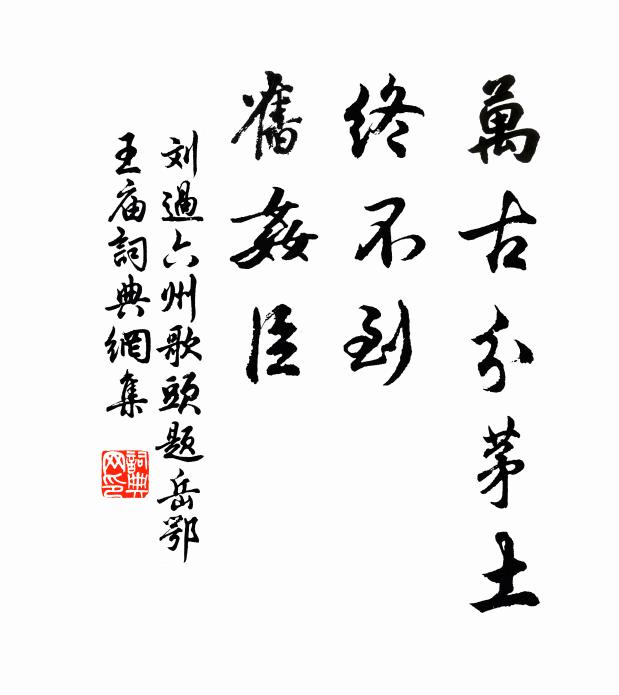 萬古分茅土
終不到
舊姦臣
刘過六州歌頭題岳鄂
王庙詞典網集
詞典网印